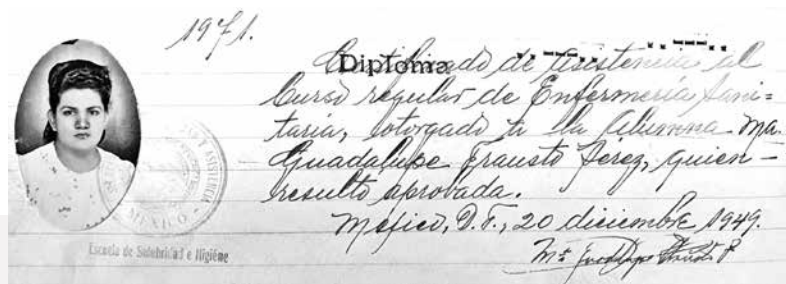 1971.
Diploma
Certificado de asistencia al
Curso regular de Enfermería Sani=
taria, otorgado a la alumna Ma.
Guadalupe Frausto Pérez, quien
resultó aprobada.
México, D.F., 20 diciembre 1949.
Ma Guadalupe Frausto P
Y ASISTENCIA
MEXICO
Escuela de Salubridad e Higiéne